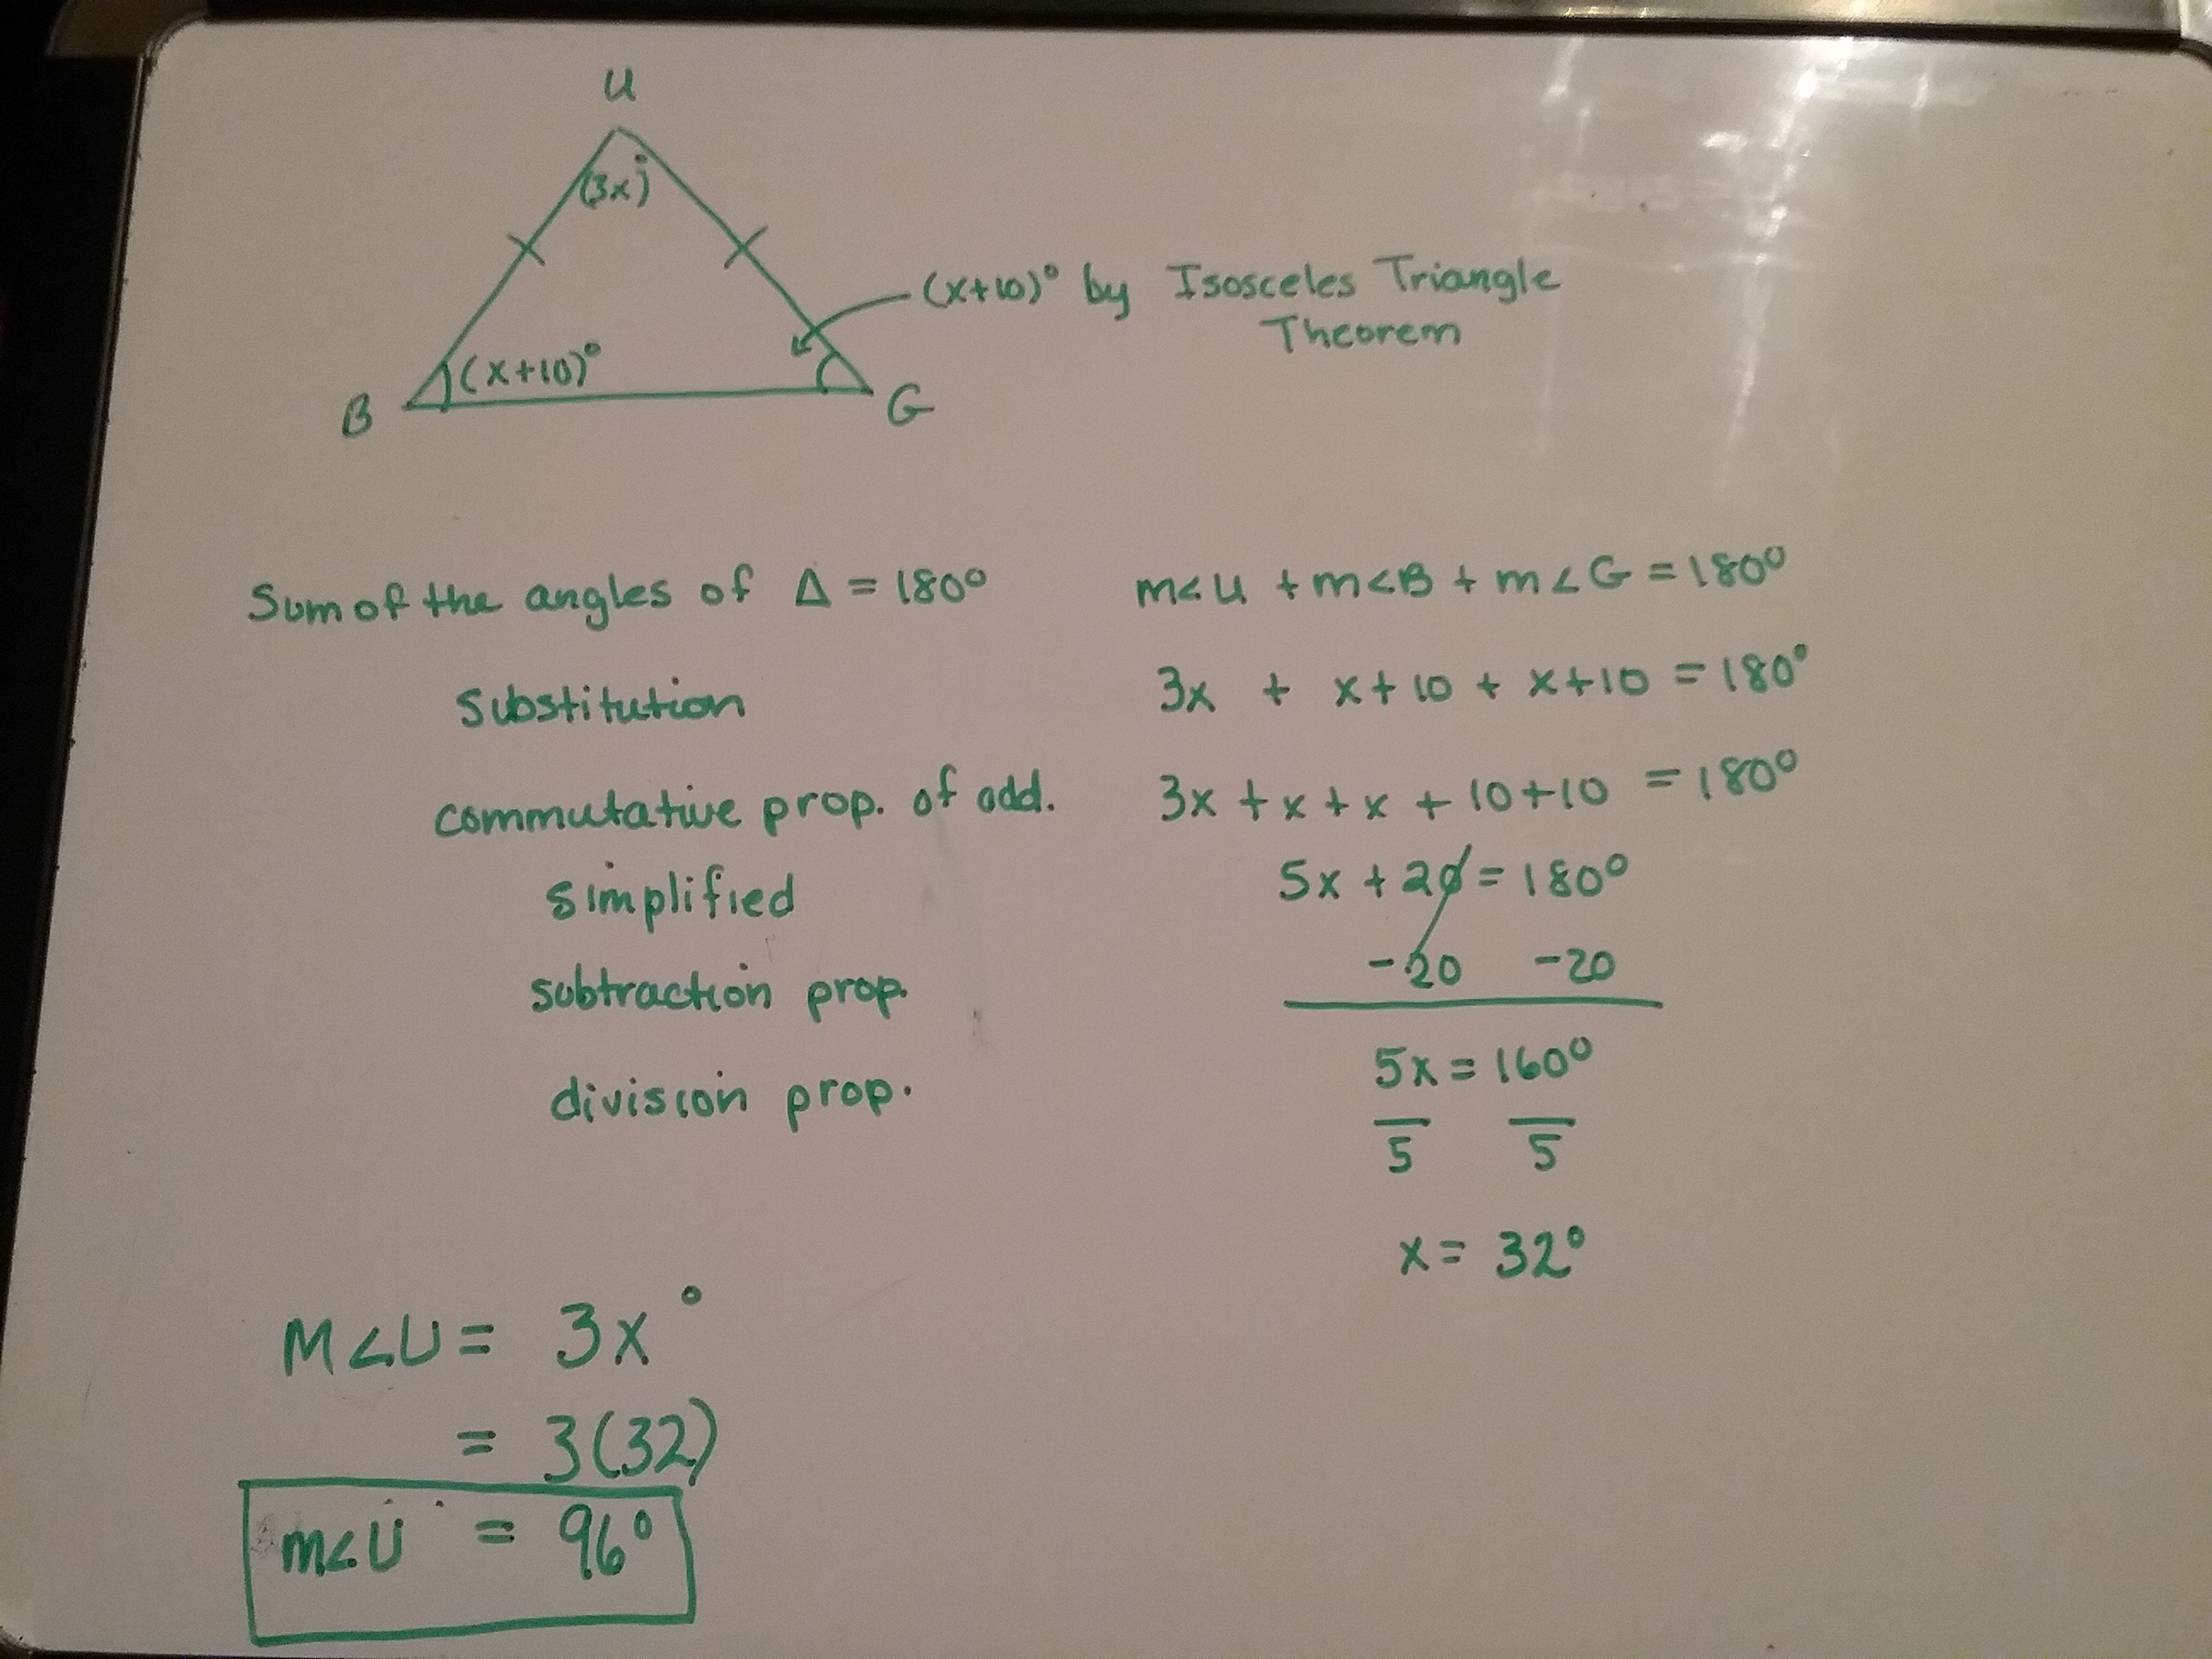 U
(3x)°
(x+10)° by Isosceles Triangle
Theorem
(x+10)°
B
G
Sum of the angles of Δ = 180° m<U + m<B + m∠G = 180°
Substitution 3x + x+10 + x+10 = 180°
commutative prop. of add. 3x + x + x + 10+10 = 180°
simplified 5x + 20 = 180°
subtraction prop. -20 -20
division prop. 5x = 160°
5 5
x = 32°
M∠U = 3x°
= 3(32)
m∠U = 96°